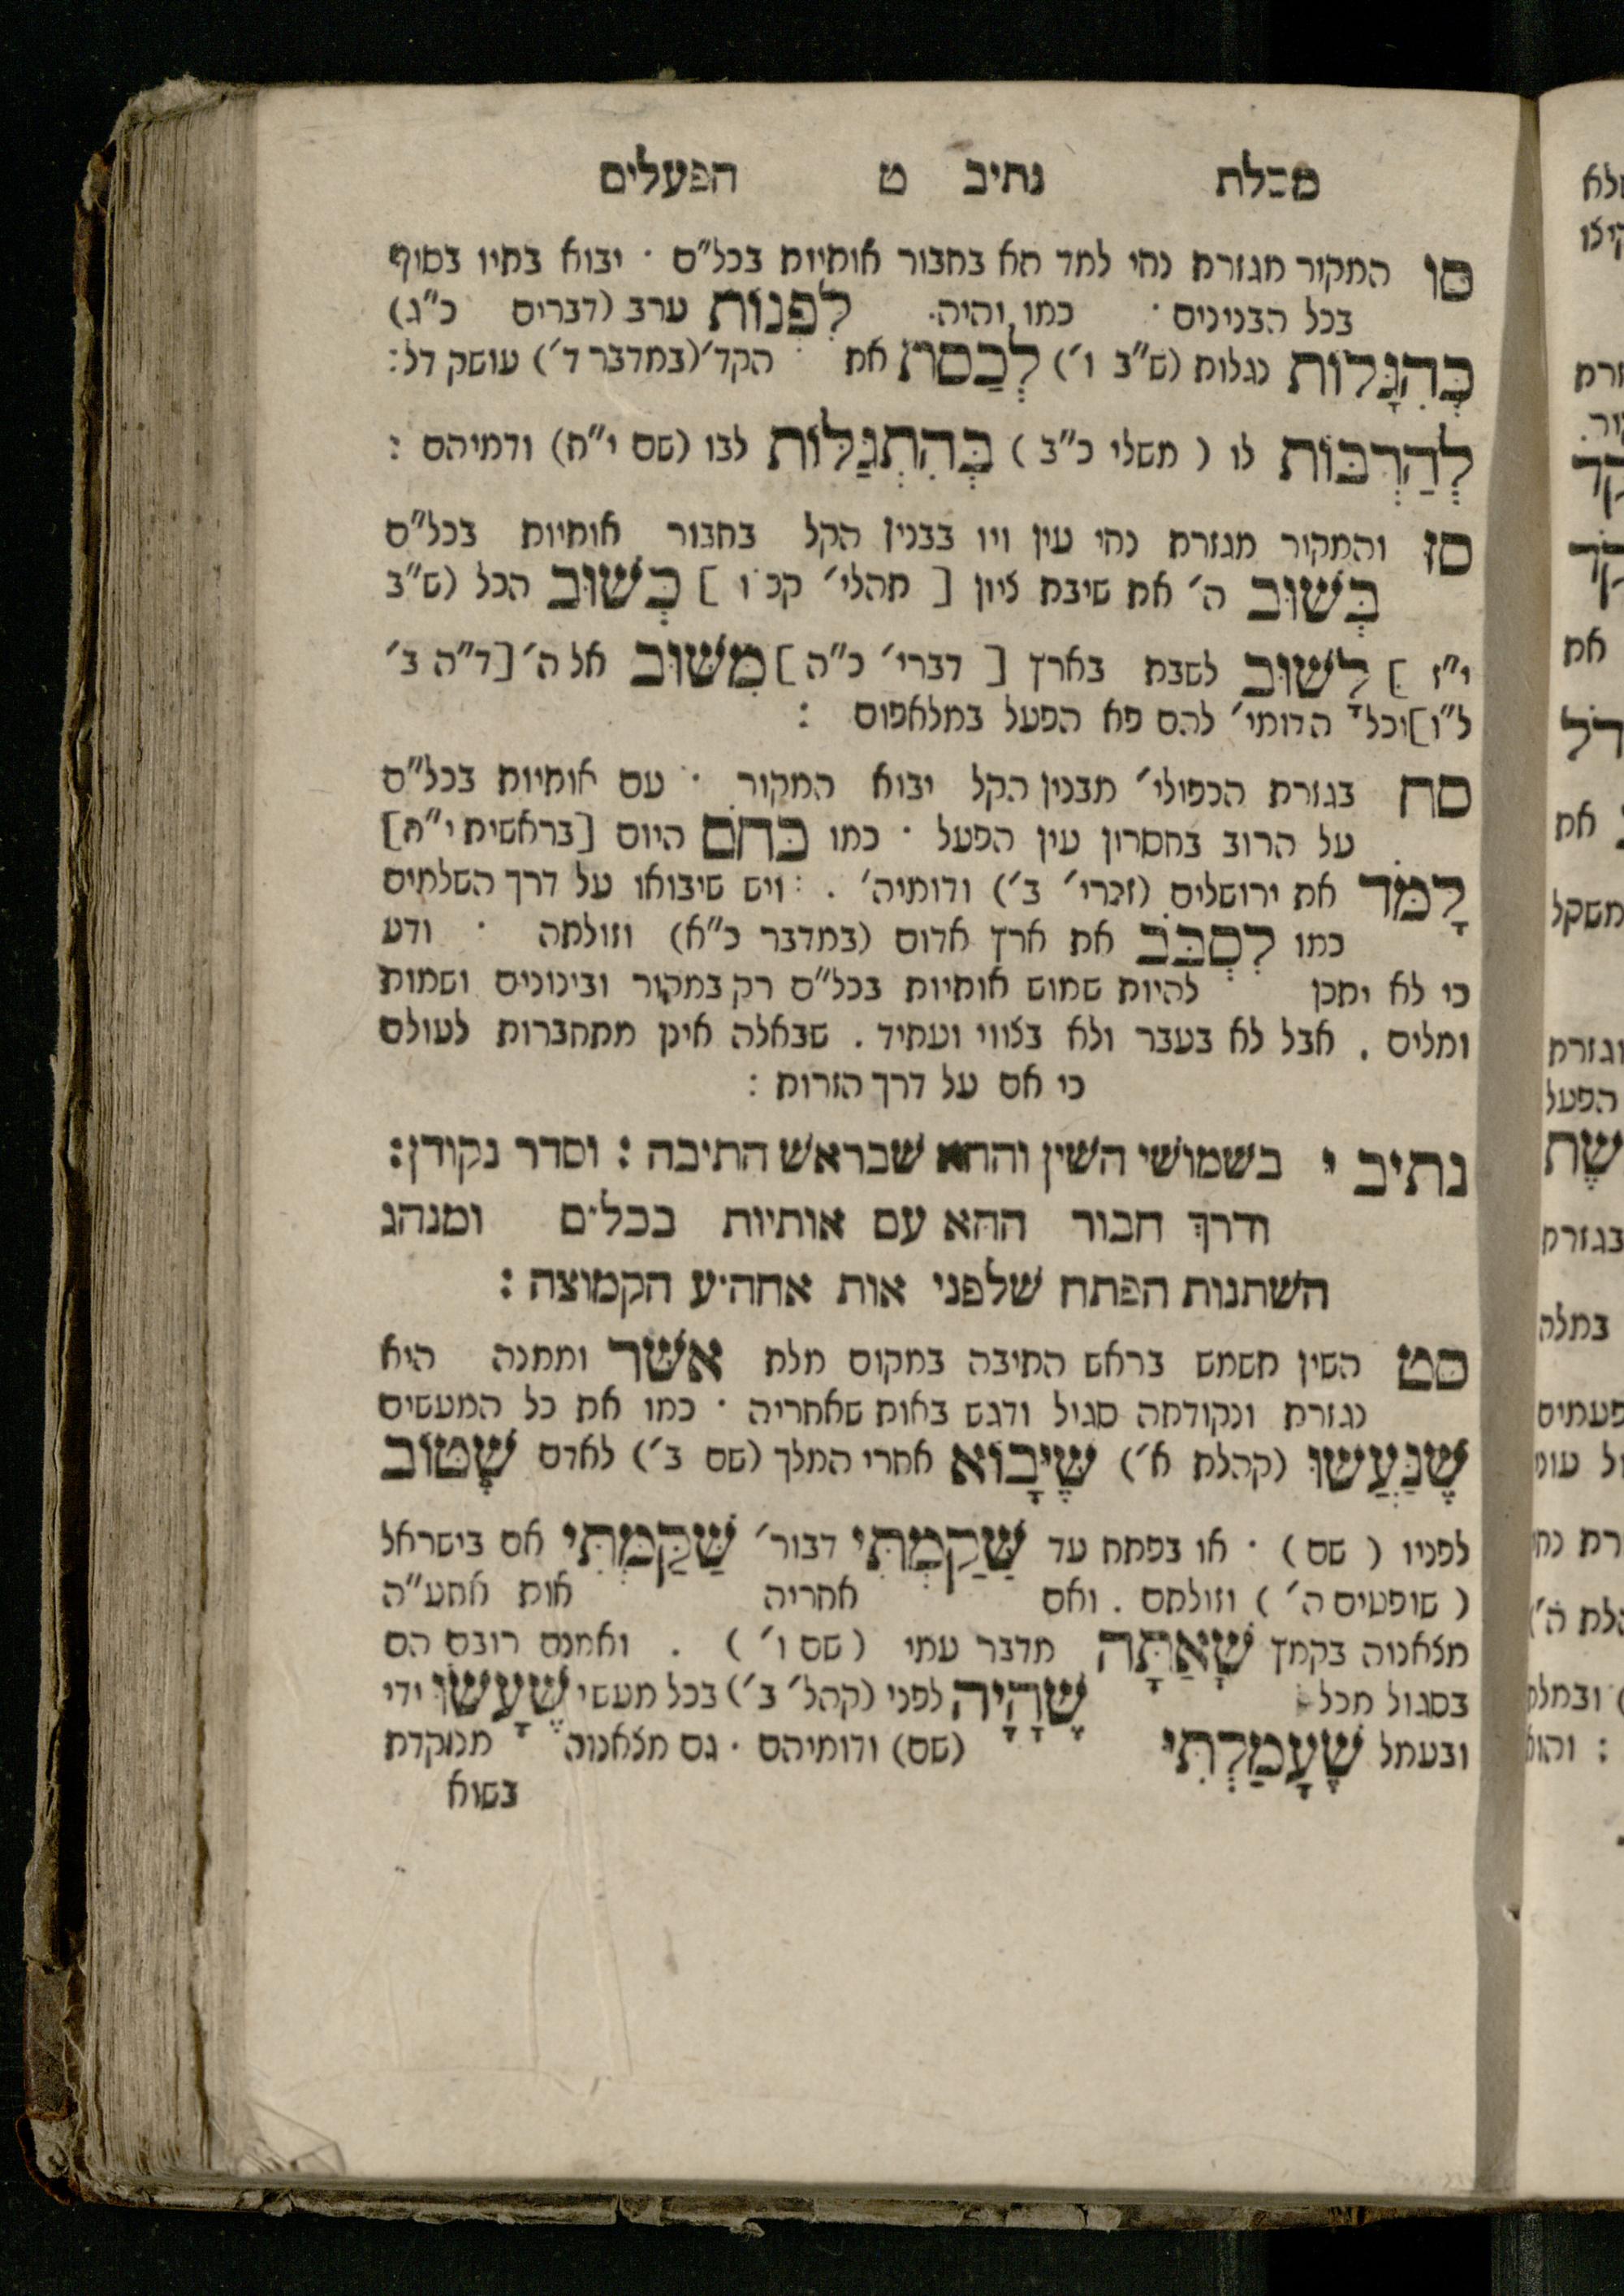 מכלת נתיב ט הפעלים
סו המקור מגזרת נחי למד הא בחבור אותיות בכל"ם · יבוא בתיו בסוף
בכל הבנינים · כמו והיה· לִפְנוֹת ערב (דברים כ"ג)
כְּהִגָּלוֹת נגלות (ש"ב ו') לְכַסּת את הקד' (במדבר ד') עושק דל:
לְהַרְבּוֹת לו (משלי כ"ב) בְּהִתְגַּלּוֹת לבו (שם י"ח) ודמיהם :
סז והמקור מגזרת נחי עין ויו בבנין הקל בחבור אותיות בכל"ם
בְּשׁוּב ה' את שיבת ציון [תהלי' קכ"ו] כְּשׁוּב הכל (ש"ב
י"ז] לָשׁוּב לשבת בארץ [דברי' כ"ה] מִשּׁוּב אל ה' [ד"ה ב'
ל"ו] וכל הדומי' להם פא הפעל במלאפום :
סח בגזרת הכפולי' מבנין הקל יבוא המקור · עם אותיות בכל"ם
על הרוב בחסרון עין הפעל · כמו כְּחֹם היום [בראשית י"ח]
לָמֹד את ירושלים (זכרי' ב') ודומיה' . : ויש שיבואו על דרך השלמים
כמו לִסְבֹּב את ארץ אדום (במדבר כ"א) וזולתה · ודע
כי לא יתכן להיות שמוש אותיות בכל"ם רק במקור ובינונים ושמות
ומלים . אבל לא בעבר ולא בצווי ועתיד . שבאלה אינן מתחברות לעולם
כי אם על דרך הזרות :
נתיב י בשמושי השין וההא שבראש התיבה : וסדר נקודן:
ודרך חבור ההא עם אותיות בכל"ם ומנהג
השתנות הפתח שלפני אות אחה"ע הקמוצה :
סט השין משמש בראש התיבה במקום מלת אשר וממנה היא
נגזרת ונקודתה סגול ודגש באות שאחריה · כמו את כל המעשים
שֶׁנַּעֲשׂוּ (קהלת א') שֶׁיָּבוֹא אחרי המלך (שם ב') לאדם שֶׁטּוֹב
לפניו (שם) · או בפתח עד שַׁקַּמְתִּי דבור' שַׁקַּמְתִּי אם בישראל
(שופטים ה') וזולתם . ואם אחריה אות אחע"ה
מצאנוה בקמץ שָׁאַתָּה מדבר עמי (שם ו') . ואמנם רובם הם
בסגול מכל שֶׁהָיָה לפני (קהל' ב') בכל מעשי שֶׁעָשׂוּ ידי
ובעמל שֶׁעָמַלְתִּי (שם) ודומיהם · גם מצאנוה מנוקדת
בשוא